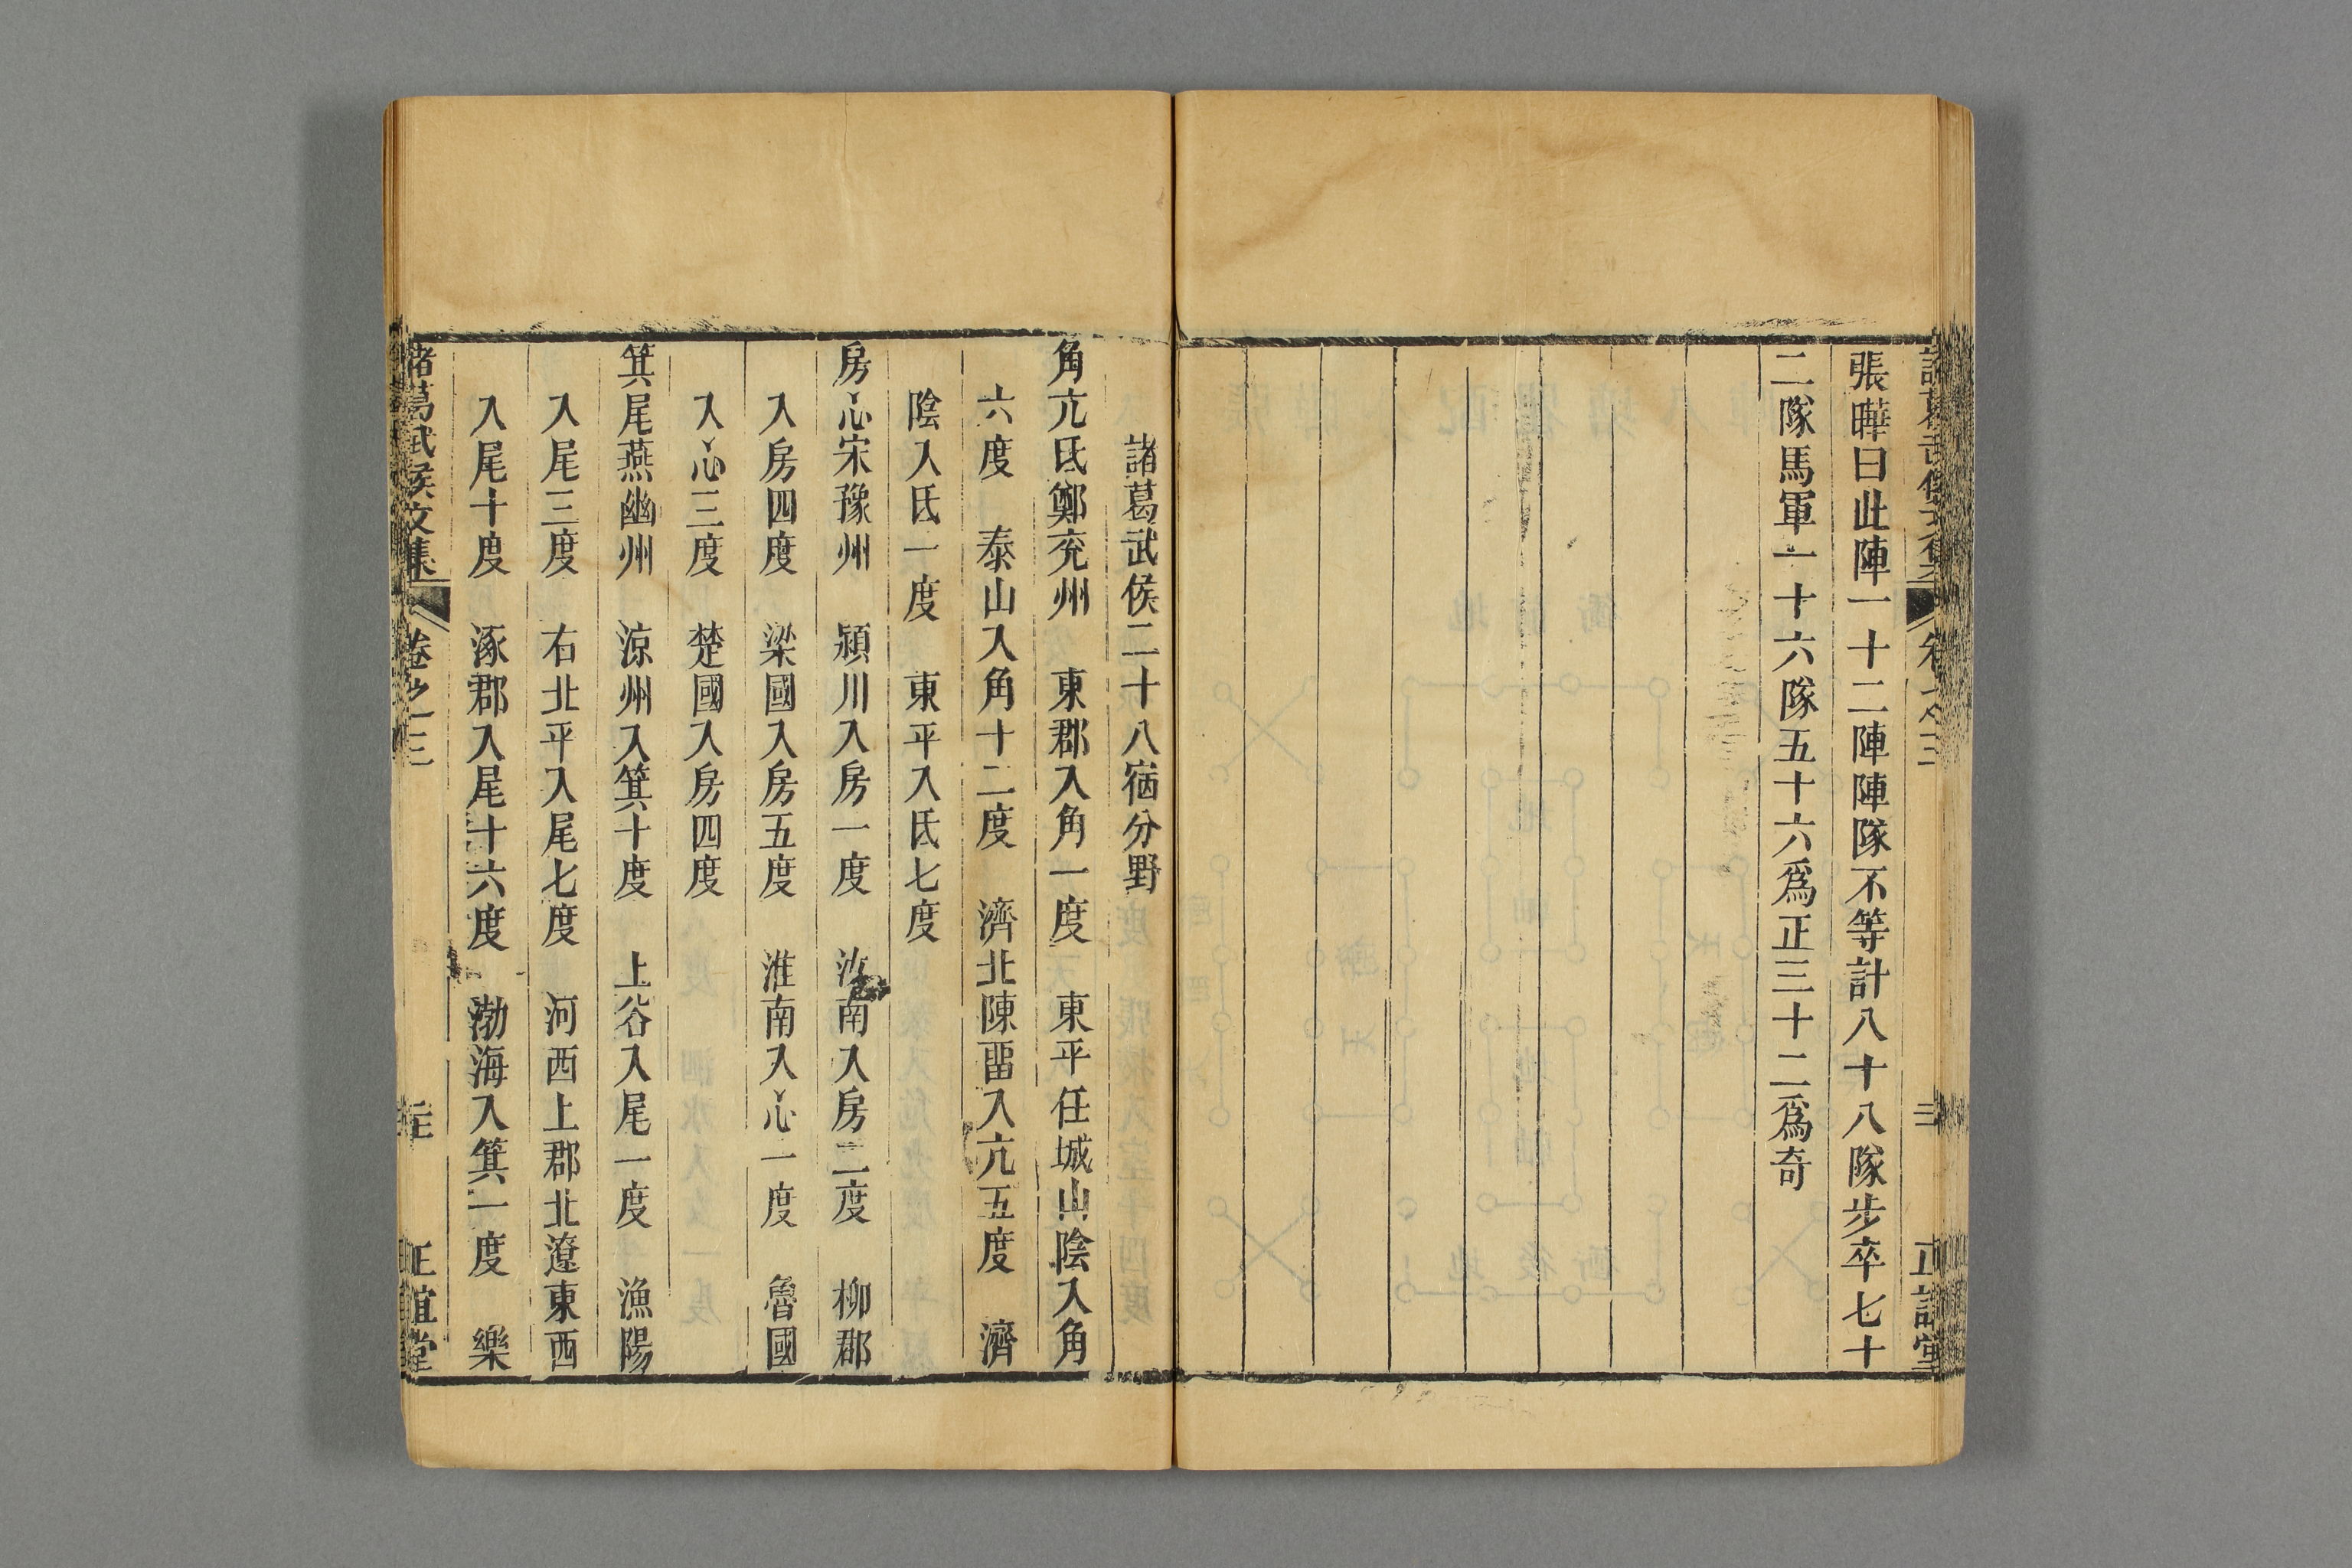 張曄曰此陣一十二陣陣隊不等計八十八隊步卒七十
二隊馬軍一十六隊五十六爲正三十二爲奇
諸葛武侯二十八宿分野
角亢氐鄭兖州　東郡入角一度　東平任城山陰入角
六度　泰山入角十二度　濟北陳畱入亢五度　濟
陰入氐一度　東平入氐七度
房心宋豫州　潁川入房一度　汝南入房二度　柳郡
入房四度　梁國入房五度　淮南入心一度　魯國
入心三度　楚國入房四度
箕尾燕幽州　涼州入箕十度　上谷入尾一度　漁陽
入尾三度　右北平入尾七度　河西上郡北遼東西
入尾十度　涿郡入尾十六度　渤海入箕一度　樂
諸葛武侯文集　卷之三　　正誼堂